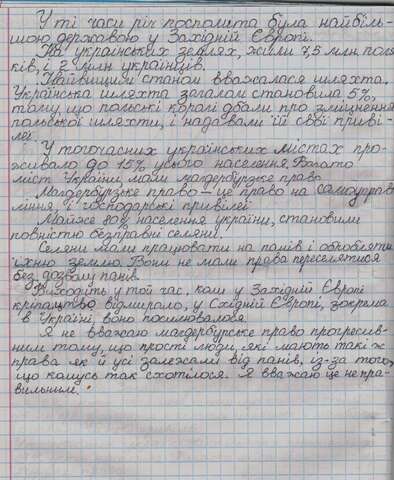 У ті часи річ посполита була найбіль-
шою державою у Західній Європі.
На українських землях, жили 7,5 млн. поля
ків, і 2 млн українців.
Найвищим станом вважалася шляхта.
Українська шляхта загалом становила 5%,
тому, що польські королі дбали про зміцнення
польської шляхти, і надавали їй свої приві-
леї.
У тогочасних українських містах про-
живало до 15% усього населення. Багато
міст України, мали магдербурзке право.
Магдербурзке право - це право на самоуправ
ління, і господарські привілеї.
Майже 80% населення україни, становили
повністю безправні селяни.
Селяни мали працювати на панів і обробляти
їхню землю. Вони не мали права переселятися
без дозволу панів.
Виходить у той час, коли у Західній Європі
кріпацтво відмирало, у Східній Європі, зокрема
в Україні, воно посилювалося.
Я не вважаю магдербурське право прогресив-
ним тому, що прості люди, які мають такі ж
права як й усі залежали від панів, із-за того,
що комусь так схотілося. Я вважаю це не пра-
вильним.